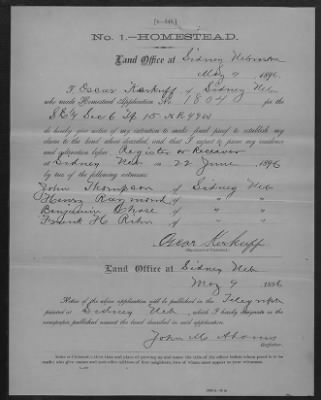 No. 1.—HOMESTEAD.
Land Office at Sidney Nebraska
May 9, 1896.
I, Oscar Kerkuff, of Sidney Neb
who made Homestead Application No. 1804 for the
SE¼ Sec 6 Tp 15 N R 49 W
do hereby give notice of my intention to make final proof to establish my
claim to the land above described, and that I expect to prove my residence
and cultivation before Register or Receiver
at Sidney Neb on 22 June, 1896
by two of the following witnesses:
John Thompson of Sidney Neb
Henry Raymond of " "
Benjamin Chase of " "
Frank H. of " "
Oscar Kerkuff
Land Office at Sidney Neb
May 9 1896
Notice of the above application will be published in the Telegraph
printed at Sidney Neb, which I hereby designate as the
newspaper published nearest the land described in said application.
John M. Adams
Register.